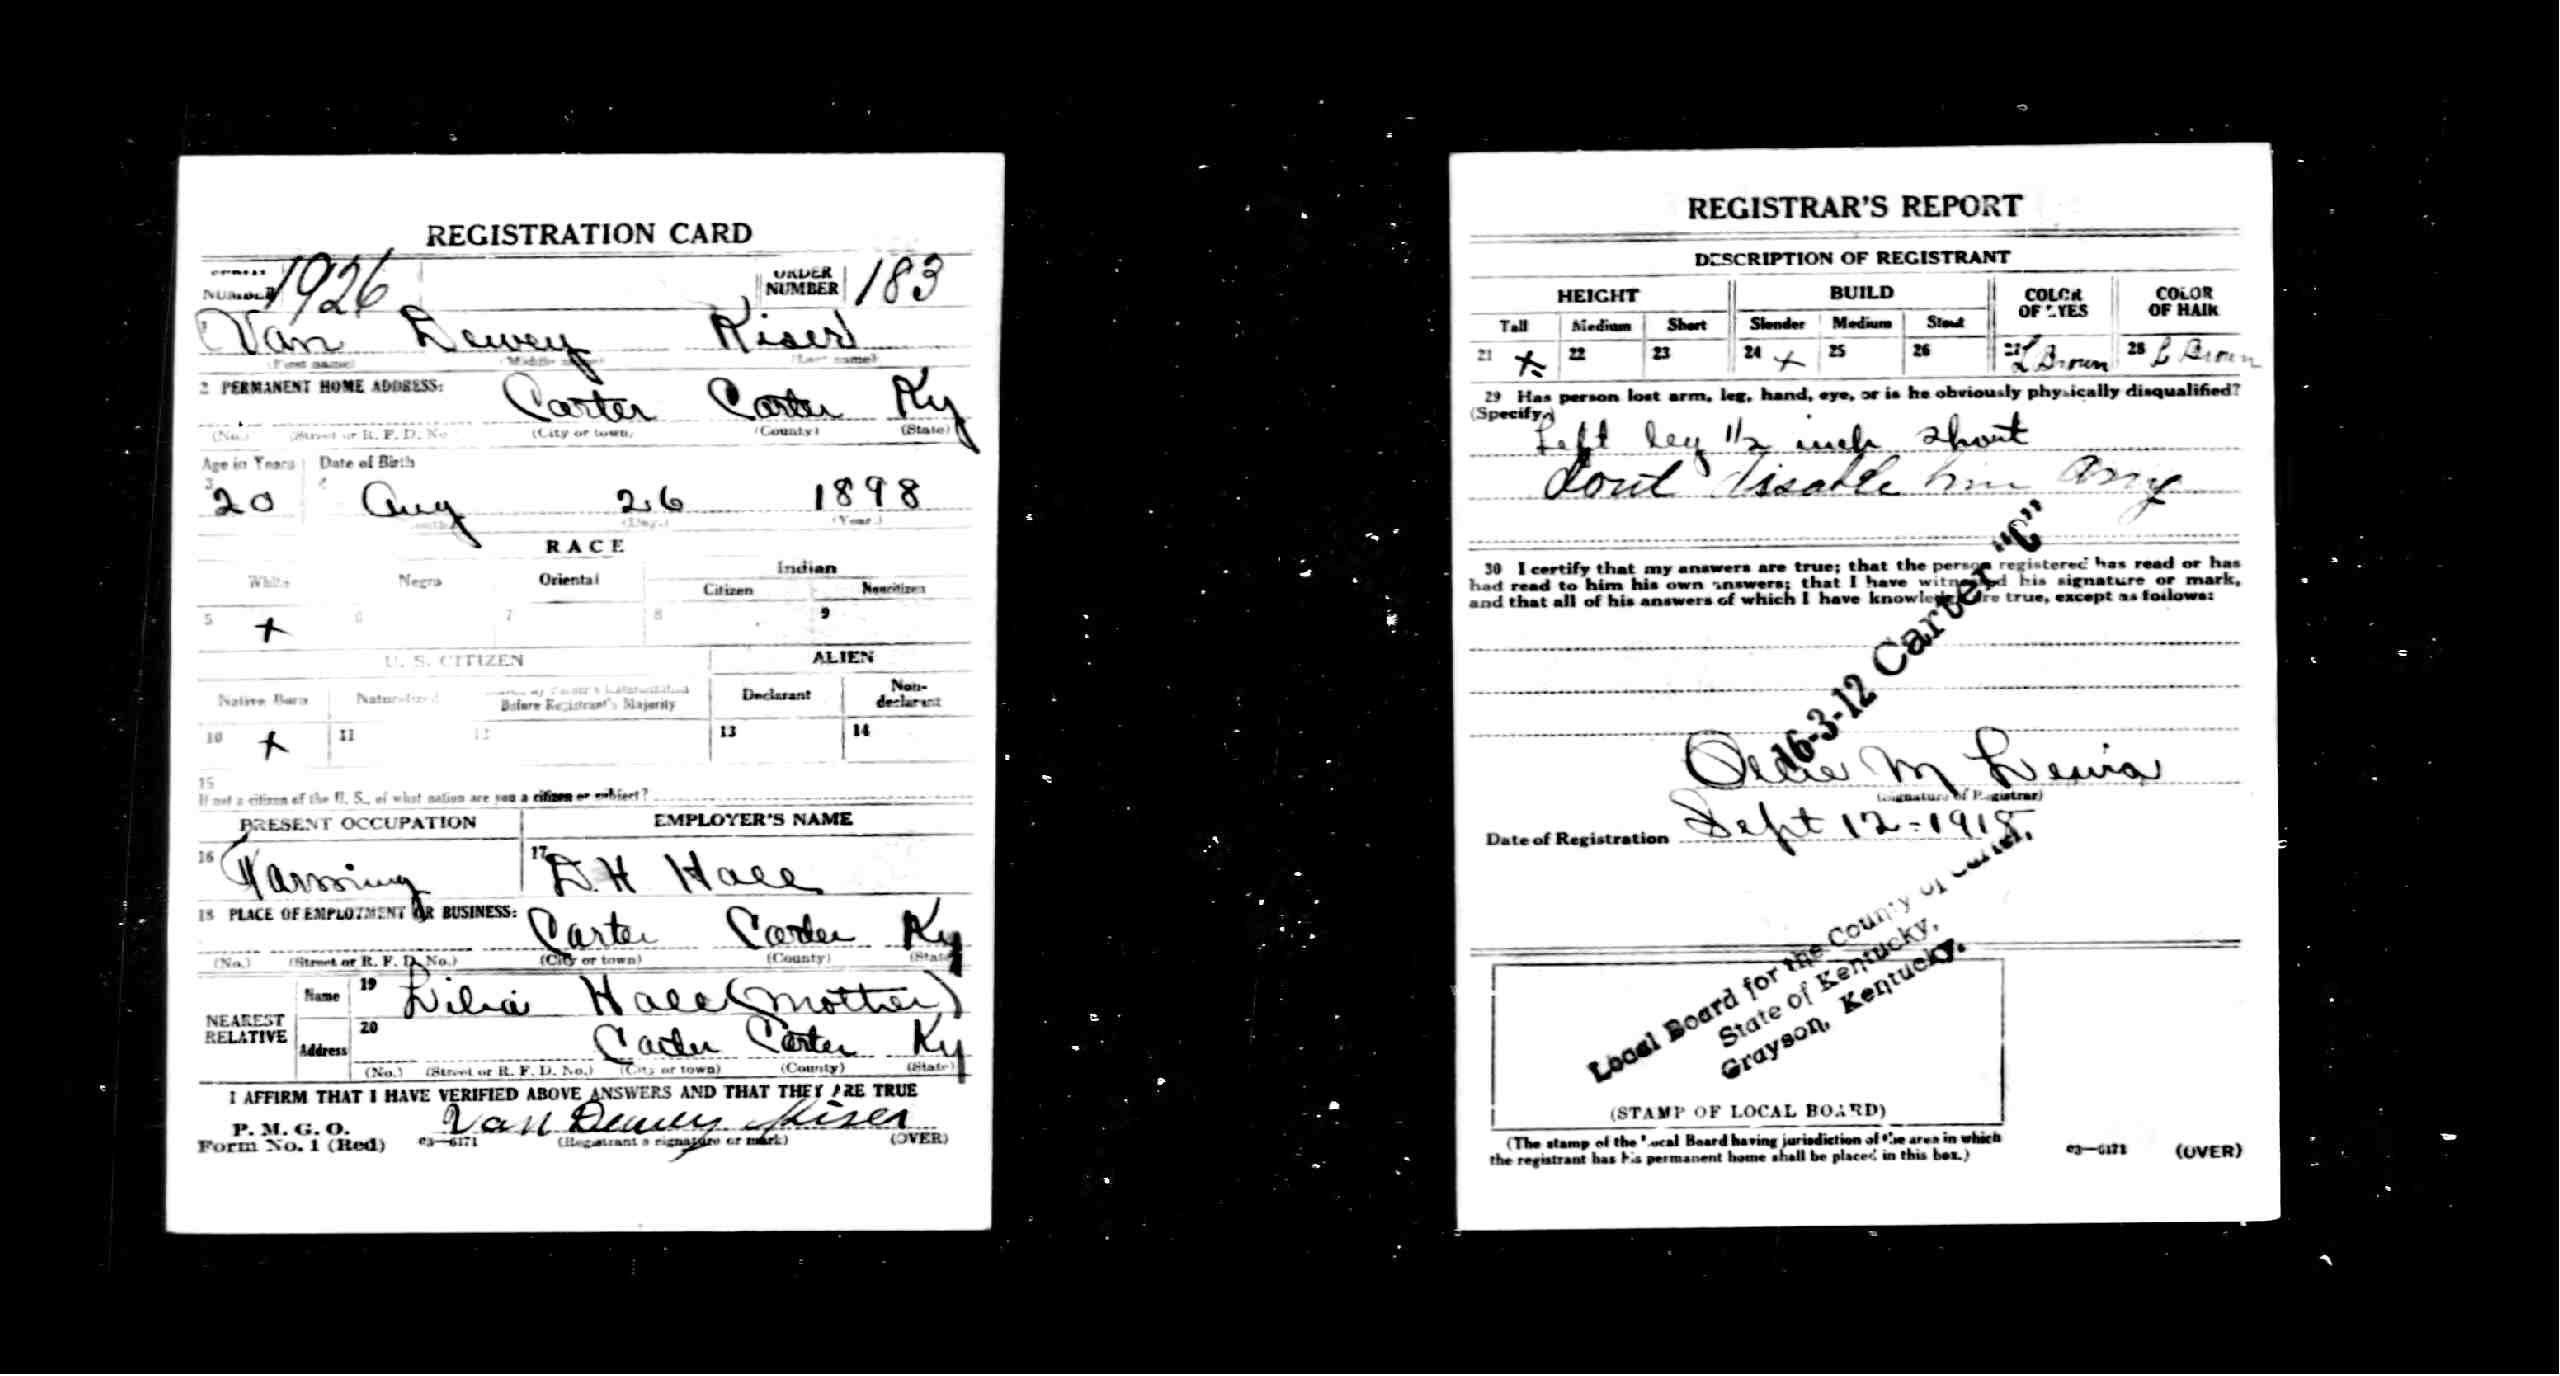 REGISTRATION CARD
NUMBER 1926 ORDER NUMBER 183
1 Van Dewey Kiser
(First name) (Middle name) (Last name)
2 PERMANENT HOME ADDRESS:
Carter Carter Ky
(No.) (Street or R. F. D. No (City or town) (County) (State)
Age in Years Date of Birth
3 20 4 Aug 26 1898
(Month) (Day.) (Year.)
RACE
White Negro Oriental Indian
Citizen Noncitizen
5 x 6 7 8 9
U. S. CITIZEN ALIEN
Native Born Naturalized Citizen by Father's Naturalization Before Registrant's Majority Declarant Non-declarant
10 x 11 12 13 14
15
If not a citizen of the U. S., of what nation are you a citizen or subject?
PRESENT OCCUPATION EMPLOYER'S NAME
16 Farming 17 D. H Hall
18 PLACE OF EMPLOYMENT OR BUSINESS:
Carter Carter Ky
(No.) (Street or R. F. D. No.) (City or town) (County) (State)
NEAREST RELATIVE Name 19 Hall (mother)
Address 20 Carter Carter Ky
(No.) (Street or R. F. D. No.) (City or town) (County) (State)
I AFFIRM THAT I HAVE VERIFIED ABOVE ANSWERS AND THAT THEY ARE TRUE
P. M. G. O.
Form No. 1 (Red) 03—6171 Van Dewey Kiser
(Registrant's signature or mark) (OVER)
REGISTRAR'S REPORT
DESCRIPTION OF REGISTRANT
HEIGHT BUILD COLOR OF EYES COLOR OF HAIR
Tall Medium Short Slender Medium Stout
21 x 22 23 24 x 25 26 27 L Brown 28 L Brown
29 Has person lost arm, leg, hand, eye, or is he obviously physically disqualified?
(Specify.)
Left leg 1/2 inch short
dont disable him any
30 I certify that my answers are true; that the person registered has read or has
had read to him his own answers; that I have witnessed his signature or mark,
and that all of his answers of which I have knowledge are true, except as follows:
16-3-12 Carter "C"
Ollie M Lewis
(Signature of Registrar)
Date of Registration Sept 12-1918
Local Board for the County of Carter,
State of Kentucky,
Grayson, Kentucky.
(STAMP OF LOCAL BOARD)
(The stamp of the Local Board having jurisdiction of the area in which
the registrant has his permanent home shall be placed in this box.)
03—6171 (OVER)